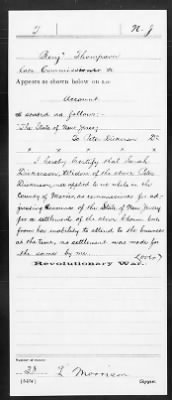 T N. J.
Benjn Thompson
Late Commissioner &
Appears as shown below on an
Account
& sword as follows:
"The State of New Jersey
To Peter Dickerson Dr
x x x x x x
I hereby Certify that Sarah
Dickerson, Widow of the above Peter
Dickerson, as applied to me while in the
County of Morris, as commissioner for ad-
justing accounts of the State of New Jersey
for a settlement of the above Claim but
from her inability to attend to the business
at the time, no settlement was made for
the same by me.
Revolutionary War.
Number of roll:
28 Morrison
Copyist.